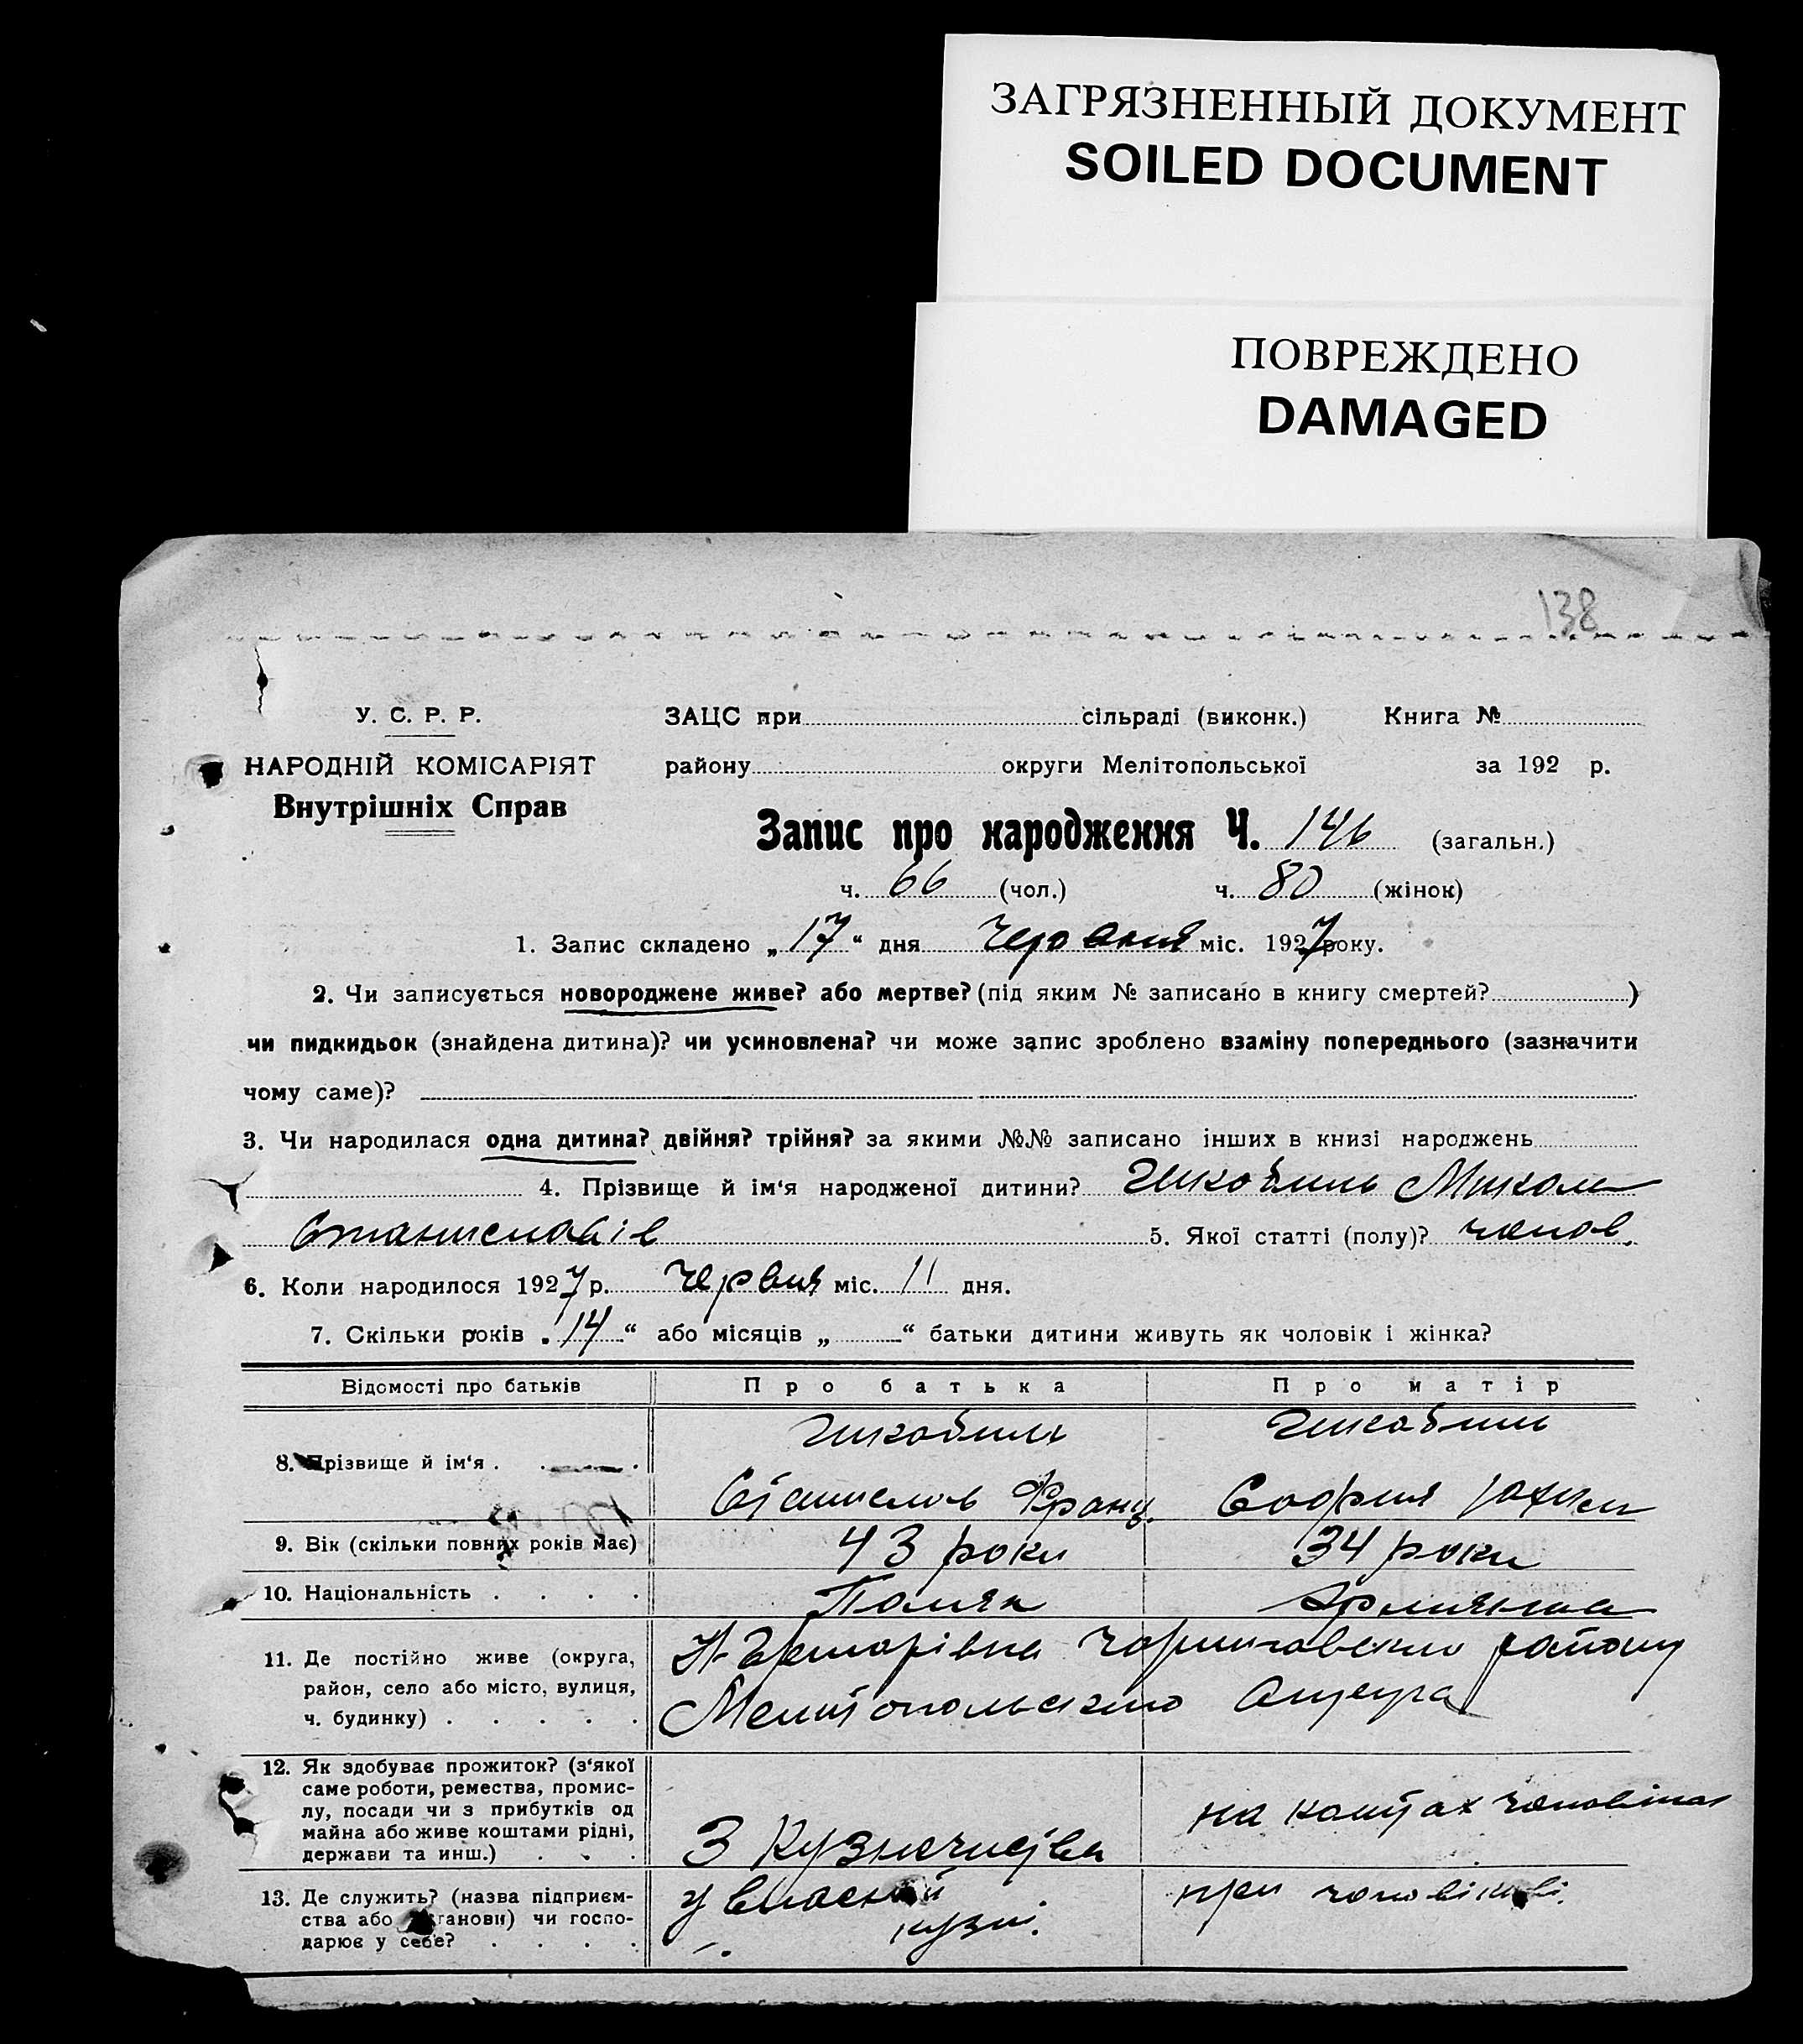 ЗАГРЯЗНЕННЫЙ ДОКУМЕНТ
SOILED DOCUMENT
ПОВРЕЖДЕНО
DAMAGED
138
У. С. Р. Р.
НАРОДНІЙ КОМІСАРІЯТ
Внутрішніх Справ
ЗАЦС при сільраді (виконк.) Книга №
району округи Мелітопольської за 192 р.
Запис про народження Ч. 146 (загальн.)
ч. 66 (чол.) ч. 80 (жінок)
1. Запис складено „17“ дня Червня міс. 1927 року.
2. Чи записується новороджене живе? або мертве? (під яким № записано в книгу смертей? )
чи пидкидьок (знайдена дитина)? чи усиновлена? чи може запис зроблено взаміну попереднього (зазначити
чому саме)?
3. Чи народилася одна дитина? двійня? трійня? за якими №№ записано інших в книзі народжень
4. Прізвище й ім‘я народженої дитини? Микола
Станиславів 5. Якої статті (полу)? чолов.
6. Коли народилося 1927 р. Червня міс. 11 дня.
7. Скільки років „14“ або місяців „ “ батьки дитини живуть як чоловік і жінка?
Відомості про батьків Про батька Про матір
8. Прізвище й ім‘я
Станислав Франц. София
9. Вік (скільки повних років має) 43 роки 34 роки
10. Національність Поляк
11. Де постійно живе (округа,
район, село або місто, вулиця,
ч. будинку)
району
Мелитопольского Округа
12. Як здобуває прожиток? (з‘якої
саме роботи, ремества, промис-
лу, посади чи з прибутків од
майна або живе коштами рідні,
держави та инш.)
З Кузнечиства
на коштах чоловіка
13. Де служить? (назва підприєм-
ства або установи) чи госпо-
дарює у себе?
у власній
кузні.
при чоловікові.